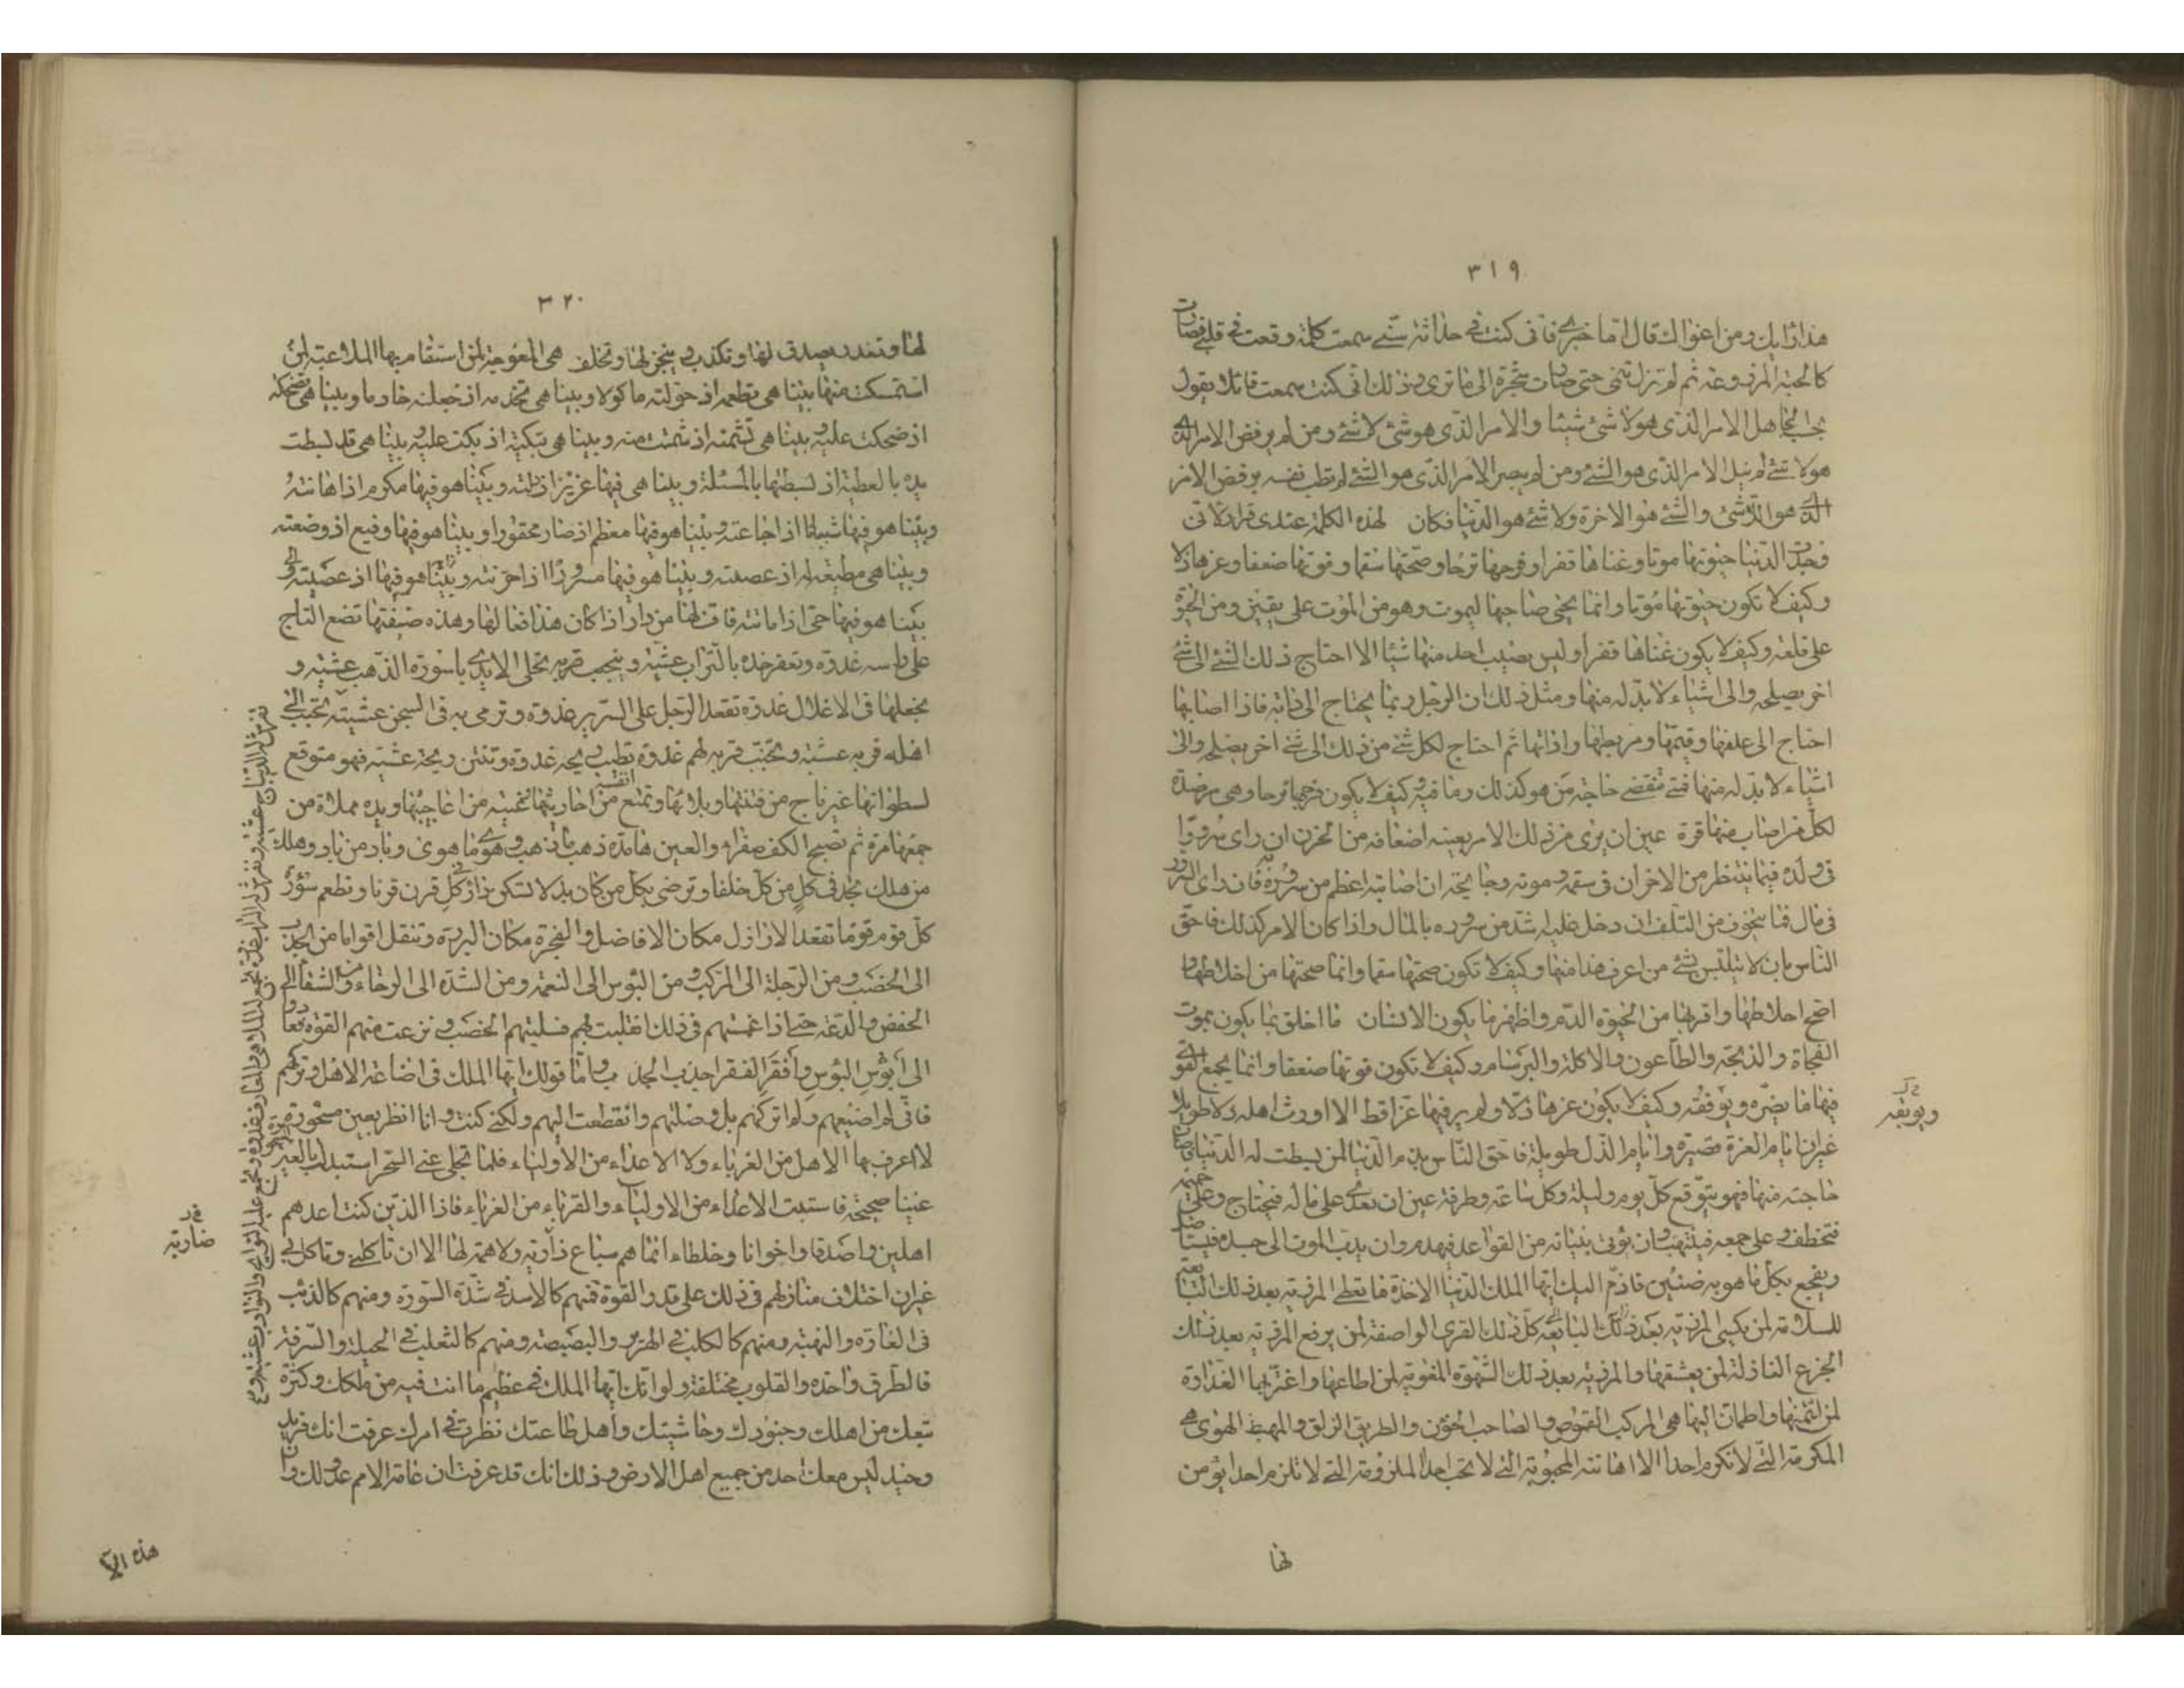 ٣١٩
هذا رأيك ومن اغواك قال اما خبري فانى كنت فى حداثة سنى سمعت كلمة وقعت فى قلبى فصارت
كالحبة المزروعة ثم لم تزل تنمى حتى صارت شجرة الى ما ترى وذلك انى كنت سمعت قائلا يقول
يحسب الجاهل الامر الذى هو لا شئ شيئا والامر الذى هو شئ لا شئ ومن لم يرفض الامر الذى
هو لا شئ لم ينل الامر الذى هو الشئ ومن لم يبصر الامر الذى هو الشئ لم تطب نفسه برفض الامر
الذى هو اللا شئ والشئ هو الاخرة ولا شئ هو الدنيا فكان لهذه الكلمة عندى قرار لانى
وجدت الدنيا حيوتها موتا وغناها فقرا وفرحها ترحا وصحتها سقما وقوتها ضعفا وعزها ذلا
وكيف لا تكون حيوتها موتا وانما يحيى صاحبها ليموت وهو من الموت على يقين ومن الحيوة
على قلعة وكيف لا يكون غناها فقرا وليس يصيب احد منها شيئا الا احتاج ذلك الشئ الى شئ
اخر يصلحه والى اشياء لا بد له منها ومثل ذلك ان الرجل ربما يحتاج الى دابة فاذا اصابها
احتاج الى علفها وقيمها ومربطها واداتها ثم احتاج لكل شئ من ذلك الى شئ اخر يصلحه والى
اشياء لا بد له منها فمتى تنقضى حاجة من هو كذلك وما فيه وكيف لا يكون فرحها ترحا وهى مرصدة
لكل من اصاب منها قرة عين ان يرى من ذلك الامر بعينه اضعافه من الحزن ان راى سرورا
فى ولده فما ينتظر من الاحزان فى سقمه وموته وجايحة ان اصابته اعظم من سروره به فان راى السرور
فى مال فما يتخوف من التلف ان دخل عليه اشد من سروره بالمال واذا كان الامر كذلك فاحق
الناس بان لا يتلبس بشئ من اعرف هذا منها وكيف لا تكون صحتها سقما وانما صحتها من اخلاطها و
اصح اخلاطها واقربها من الحيوة الدم واظهر ما يكون الانسان ما اخلق بما يكون بموت
الفجاة والذبحة والطاعون والاكلة والبرسام وكيف لا تكون قوتها ضعفا وانما يجمع القوى
فيها ما يضره ويوبقه وكيف لا يكون عزها ذلا ولم ير فيها عز قط الا اورث اهله ذلا طويلا
غير ان ايام العزة قصيرة وايام الذل طويلة فاحق الناس بذم الدنيا لمن بسطت له الدنيا فاصاب
حاجته منها فهو يتوقع كل يوم وليلة وكل ساعة وطرفة عين ان يعدى على ماله فيحتاج وعلى حميمه
فيختطف وعلى جمعه فينتهب وان يؤتى بنيانه من القواعد فيهدم وان يدب الموت الى جسده فيستاصل
ويفجع بكل ما هو به ضنين فاذم اليك ايها الملك الدنيا الاخذة ما تعطى المورثة بعد ذلك التباعة
الجزع النازلة لمن يعشقها والمردية بعد ذلك الشهوة المغوية لمن اطاعها واغتر بها الغدارة
لمن ائتمنها واطمان اليها هى المركب القموص والصاحب الخؤن والطريق الزلق والمهبط الهوى هى
المكرمة التى لا تكرم احدا الا اهانته المحبوبة التى لا تحب احدا الملزومة التى لا تلزم احدا يؤمن
ويوبقه
لها
٣٢٠
لها وتغدر يصدق لها وتكذب وينجز لها وتخلف هى المعوجة لمن استقام بها المتلاعبة لمن
استمسكت منها بينا هى تطعمه اذ حولته ماكولا وبينا هى تخدمه اذ جعلته خادما وبينا هى تضحكه
اذ ضحكت عليه وبينا هى تشتمه اذ شمتت منه وبينا هى تبكيه اذ بكت عليه وبينا هى قد بسطت
يده بالعطية اذ بسطتها بالمسئلة وبينا هى فيها عزيز اذ اذلته وبينا هو فيها مكرم اذ اهانته
وبينا هو فيها شبعان اذ اجاعته وبينا هو فيها معظم اذ صار محقورا وبينا هو فيها رفيع اذ وضعته
وبينا هى مطيعة له اذ عصته وبينا هو فيها مسرورا اذ احزنته
بينا هو فيها حى اذ اماتته فاف لها من دار اذا كان هذا فعالها وهذه صفتها تضع التاج
على راسه غدوة وتعفر خده بالتراب عشية وتحلى الايدى باسورة الذهب عشية و
تجعلها فى الاغلال غدوة تقعد الرجل على السرير غدوة وترمى به فى السجن عشية تحبب الى
اهله قربه عشية وتجنب قربه لهم غدوة تطيب ريحه غدوة وتنتن ريحه عشية فهو متوقع
لسطواتها غير ناج من فتنتها وبلائها وتمتع نفسه من احاديثها وعينه من اعاجيبها ويده مملاة من
جمعها مرة ثم تصبح الكف صفرا والعين هامدة ذهب ما ذهب وهوى ما هوى وباد من باد وهلك
من هلك تجد فى كل من كل خلفا وترضى بكل من كان بدلا تسكن دار كل قرن قرنا وتطعم سؤر
كل قوم قوما تقعد الاراذل مكان الافاضل والفجرة مكان البررة وتنقل اقواما من الجدب
الى الخصب ومن الرجلة الى المركب ومن البؤس الى النعمة ومن الشدة الى الرخاء ومن الشقاء الى
الخفض والدعة حتى اذا غمستهم فى ذلك انقلبت بهم فسلبتهم الخصب ونزعت منهم القوة فعادوا
الى ابؤس البؤس وافقر الفقر واجدب الجدب واما قولك ايها الملك فى اضاعة الاهل وتركهم
فانى لم اضيعهم ولم اتركهم بل وصلتهم وانقطعت اليهم ولكنى كنت وانا انظر بعين مسحورة
لا اعرف بها الاهل من الغرباء ولا الاعداء من الاولياء فلما تجلى عنى السحر استبدلت بالعين المسحورة
عينا صحيحة فاستبنت الاعداء من الاولياء والقرباء من الغرباء فاذا الذين كنت اعدهم
اهلين واصدقا واخوانا وخلطاء انما هم سباع ضارية ولا همة لها الا ان تاكلنى وتاكل بى
غير ان اختلاف منازلهم فى ذلك على قدر القوة فمنهم كالاسد فى شدة السورة ومنهم كالذئب
فى الغارة والنهبة ومنهم كالكلب فى الهرير والبصبصة ومنهم كالثعلب فى الحيلة والسرقة
فالطرق واحدة والقلوب مختلفة ولو انك ايها الملك فى عظيم ما انت فيه من ملكك وكثرة
تبعك من اهلك وجنودك وحاشيتك واهل طاعتك نظرت فى امرك عرفت انك فريد
وحيد ليس معك احد من جميع اهل الارض وذلك انك قد عرفت ان عامة الامم عدو لك وان
ضارية
هذه الا